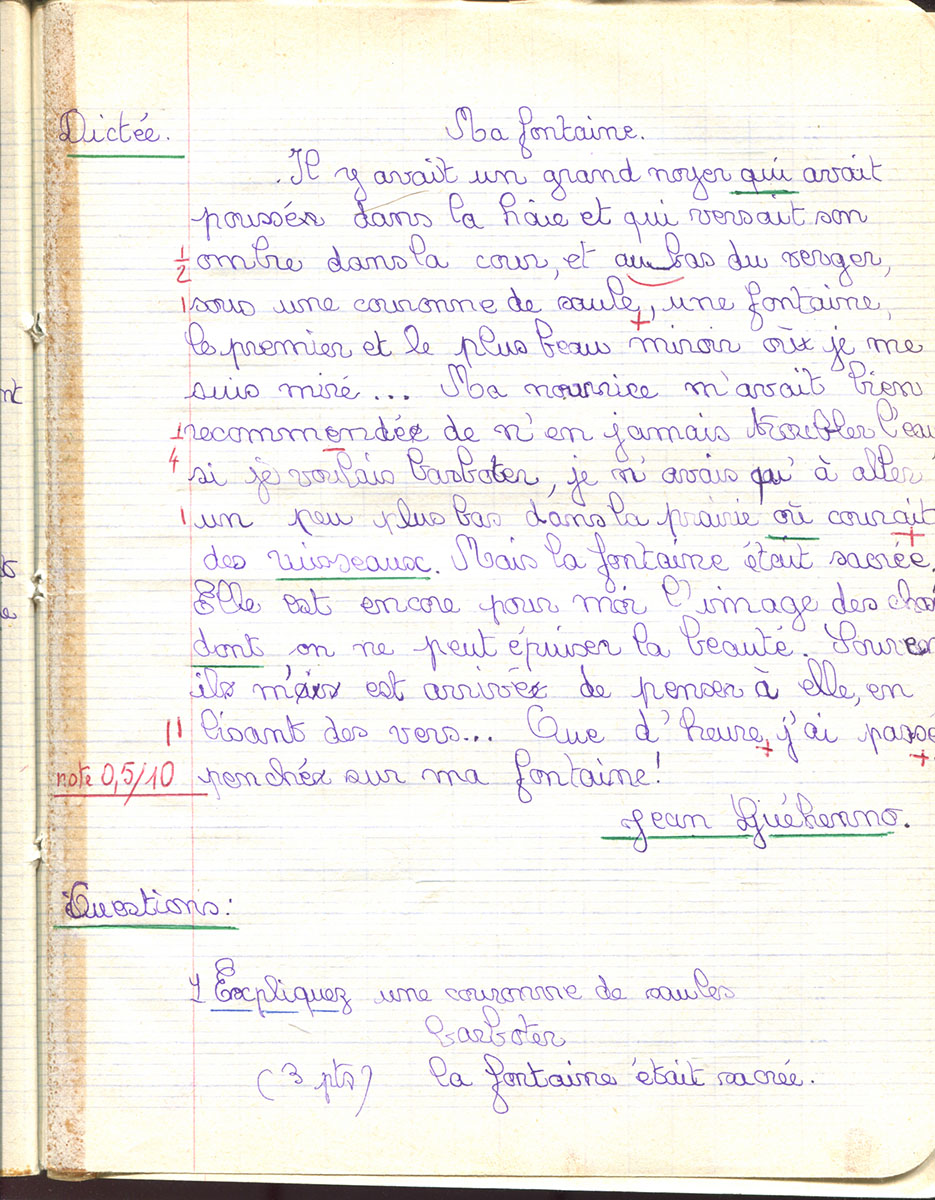 Dictée. Ma fontaine.
Il y avait un grand noyer qui avait
poussé dans la hâie et qui versait son
1/2 ombre dans la cour, et au bas du verger,
1 sous une couronne de saule, une fontaine,
le premier et le plus beau miroir où je me
suis miré... Ma nourrice m'avait bien
1/4 recommendé de n'en jamais troubler l'eau
si je voulais barboter, je n'avais qu'à aller
1 un peu plus bas dans la prairie où courait
des ruisseaux. Mais la fontaine était sacrée.
Elle est encore pour moi l'image des cho
dont on ne peut épuiser la beauté. Souven
il m'est arrivé de penser à elle, en
11 lisant des vers... Que d'heure j'ai passé
note 0,5/10 penché sur ma fontaine!
Jean Guéhenno.
Questions:
1 Expliquez une couronne de saules
barboter
(3 pts) la fontaine était sacrée.